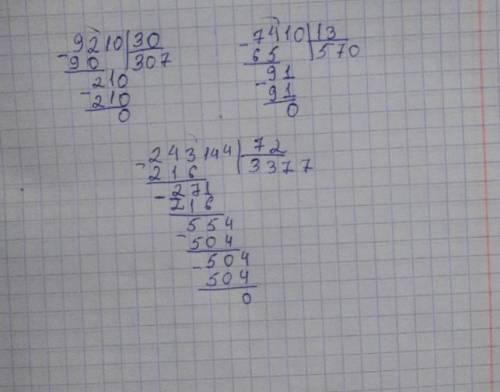 9210 | 30
- 90 | 307
- 210
210
0
7410 | 13
- 65 | 570
- 91
91
0
243144 | 72
- 216 | 3377
- 271
216
554
- 504
- 504
504
0